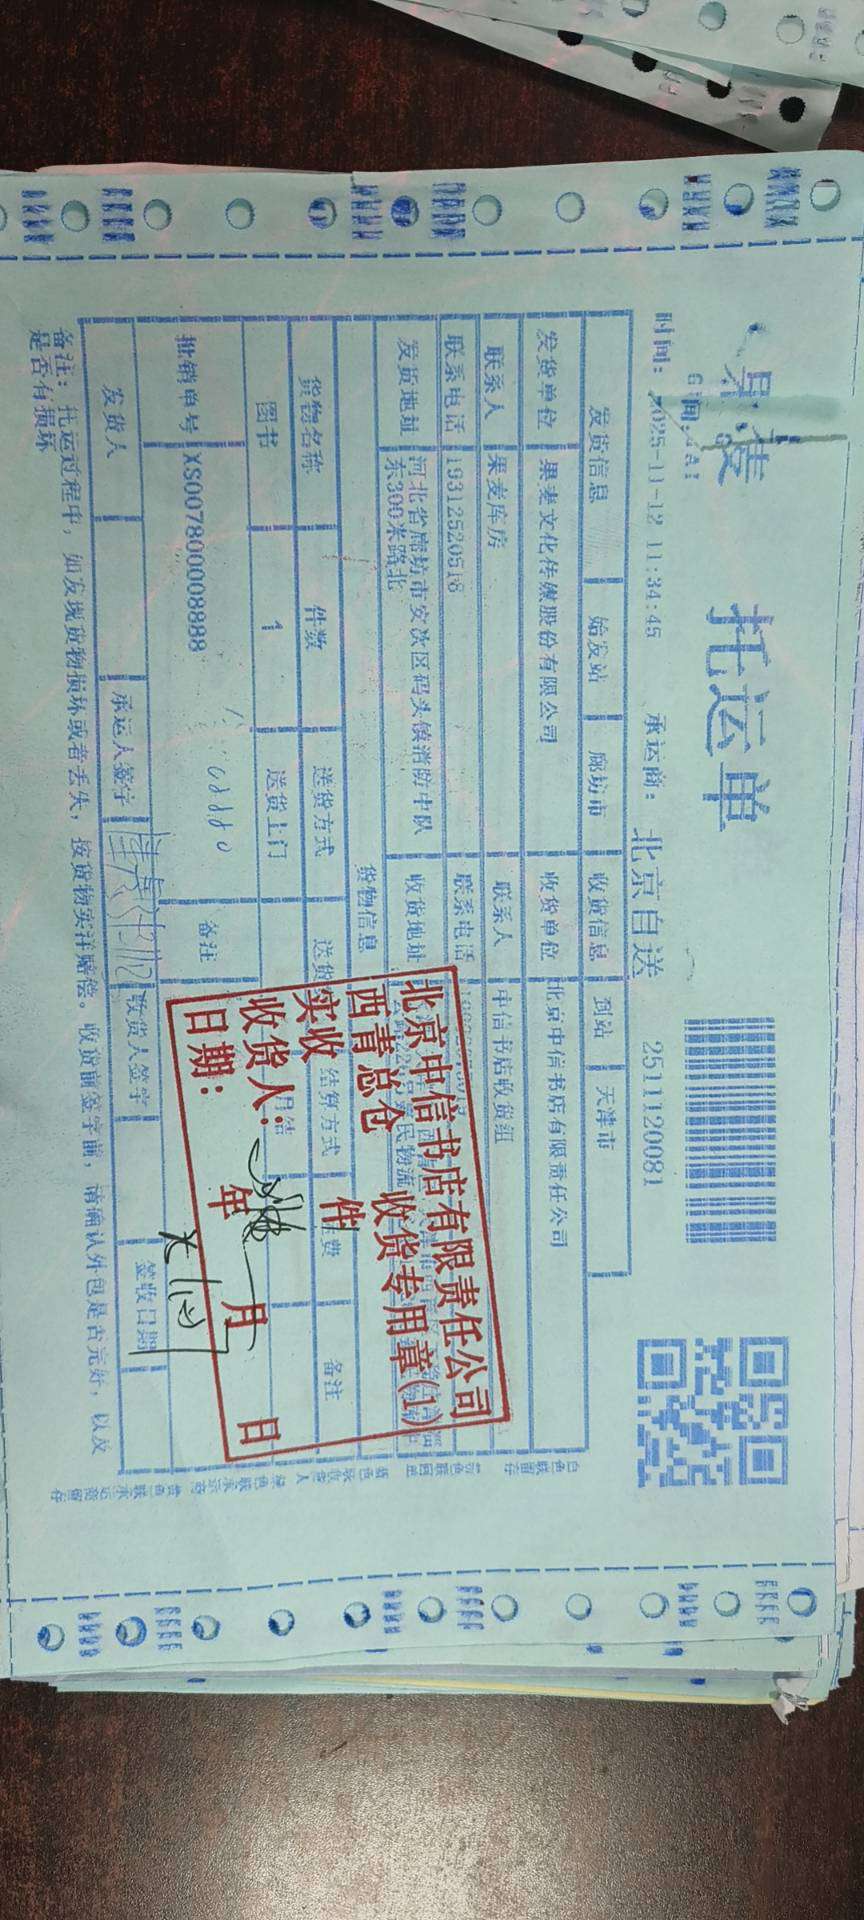 果麦
托运单
时间： 2025-11-12 11:34:45 承运商： 北京自送 2511120081
发货信息 始发站 廊坊市 收货信息 到站 天津市
发货单位 果麦文化传媒股份有限公司 收货单位 北京中信书店有限责任公司
联系人 果麦库房 联系人 中信书店收货组
联系电话 19312520516 联系电话
发货地址 河北省廊坊市安次区码头镇消防中队东300米路北 收货地址
货物信息
货物名称 件数 送货方式 结算方式 备注
图书 1 送货上门 月结
批销单号 XS007800008888 备注
发货人 承运人签字 收货人签字 签收日期
备注：托运过程中，如发现货物损坏或者丢失，按货物实洋赔偿。收货前签字前，请确认外包是否完好，以及
是否有损坏
北京中信书店有限责任公司
西青总仓 收货专用章(1)
实收 件
收货人：
日期： 年 月 日